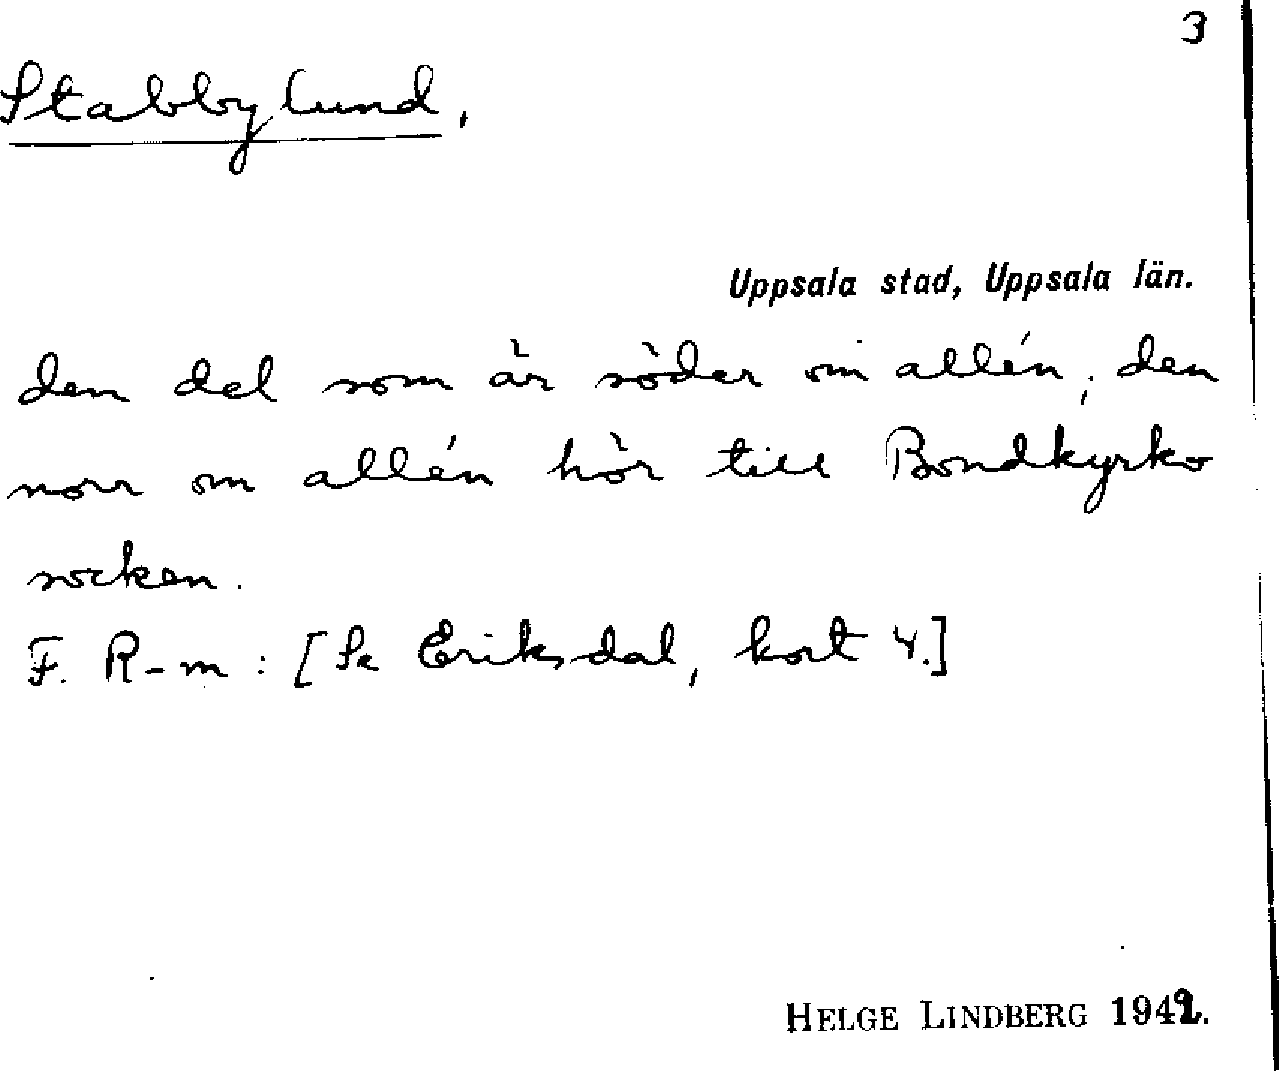 3
Stabbylund,
Uppsala stad, Uppsala län.
den del som är söder om allén; den
norr om allén hör till Bondkyrko
socken.
F. R-m: [Se Eriksdal, kort 4.]
HELGE LINDBERG